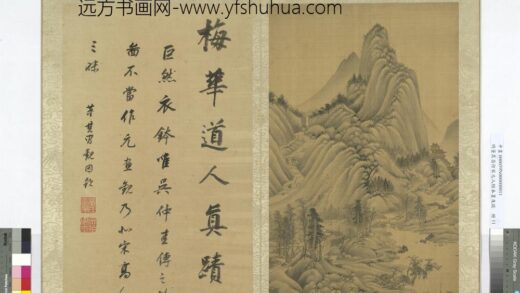 远方书画网-www.yfshuhua.com
梅華道人真蹟
巨然衣鉢唯吳仲圭傳之
啚不當作元畫觀乃北宋高
三昧
董其昌觀因題